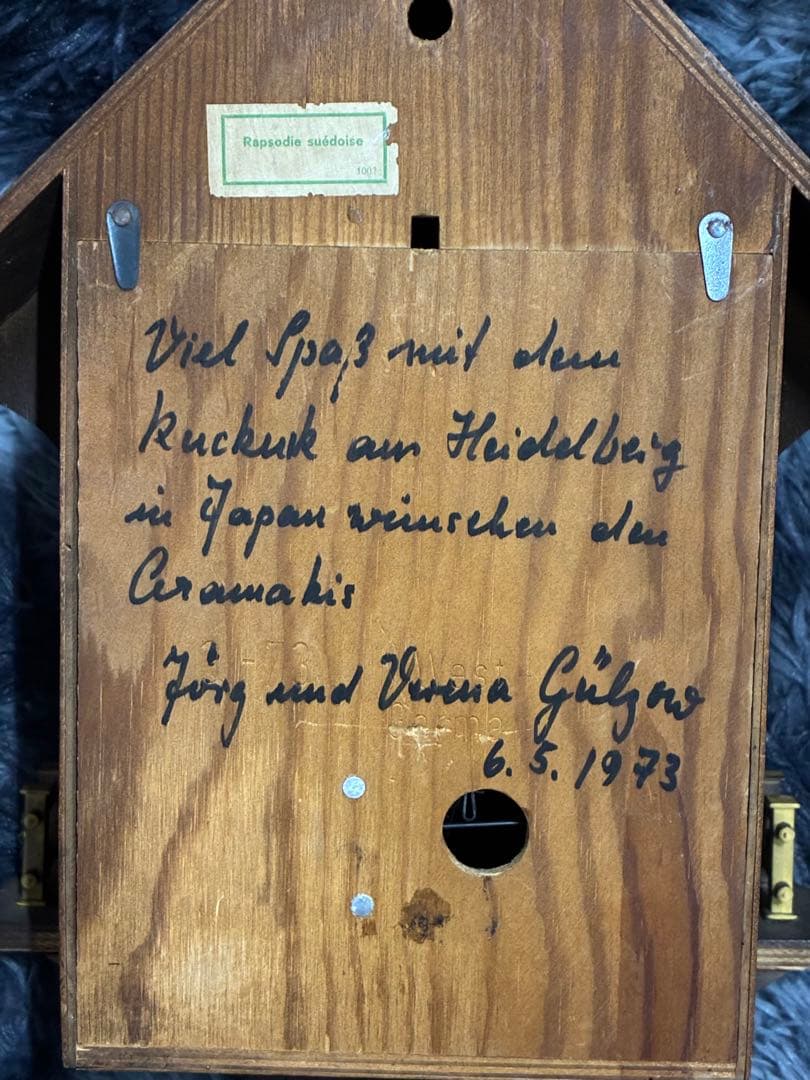 Rapsodie suédoise
Viel Spaß mit dem
Kuckuck aus Heidelberg
in Japan wünschen den
Aramakis
Jörg und Verena Gülzow
6.5.1973